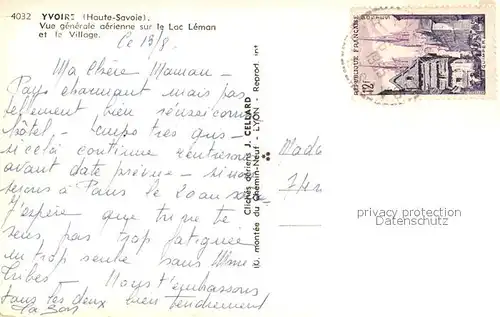 4032 YVOIRE (Haute-Savoie).
Vue générale aérienne sur le Lac Léman
et le Village.
Le 13/8.
Ma chère Maman -
Pays charmant mais pas
tellement bien réussi comme
hôtel - Temps très gris -
si cela continue rentrerons
avant date prévue - sinon
serons à Paris le 20 au soir
J'espère que tu ne te
sens pas trop fatiguée
ni trop seule sans Mme
Tribes - Nous t'embrassons
tous les deux bien tendrement
Clichés aériens J. CELLARD
10, montée du Chemin-Neuf - LYON - Reprod. int
RÉPUBLIQUE FRANÇAISE
POSTES
12F
Mad
protection privacy
Datenschutz